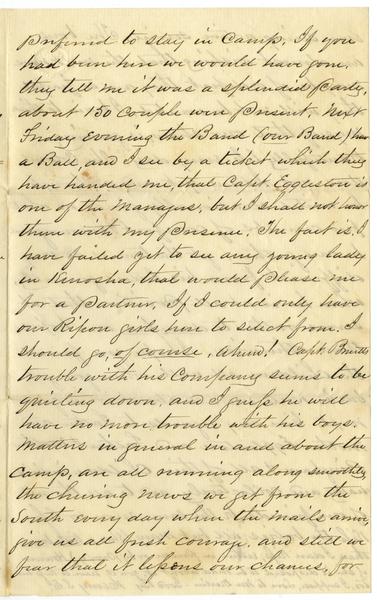 Preferred to stay in Camp, If you
had been here we would have gone.
they tell me it was a splendid Party,
about 150 couple were Present. Next
Friday evening the Band (our Band) have
a Ball, and I see by a ticket which they
have handed me, that Capt. Eggleston is
one of the Managers. but I shall not honor
them with my Presence. The fact is, I
have failed yet to see any young lady
in Kenosha, that would Please me
for a Partner, If I could only have
our Ripon girls here to select from, I
should go, of course, Ahem! Capt.
trouble with his Company seems to be
quieting down, and I guess he will
have no more trouble with his boys.
Matters in general in and about the
Camp, are all running along smoothly
the cheering news we get from the
South every day when the Mails arrive,
give us all fresh courage, and still we
fear that it lessens our chances, for